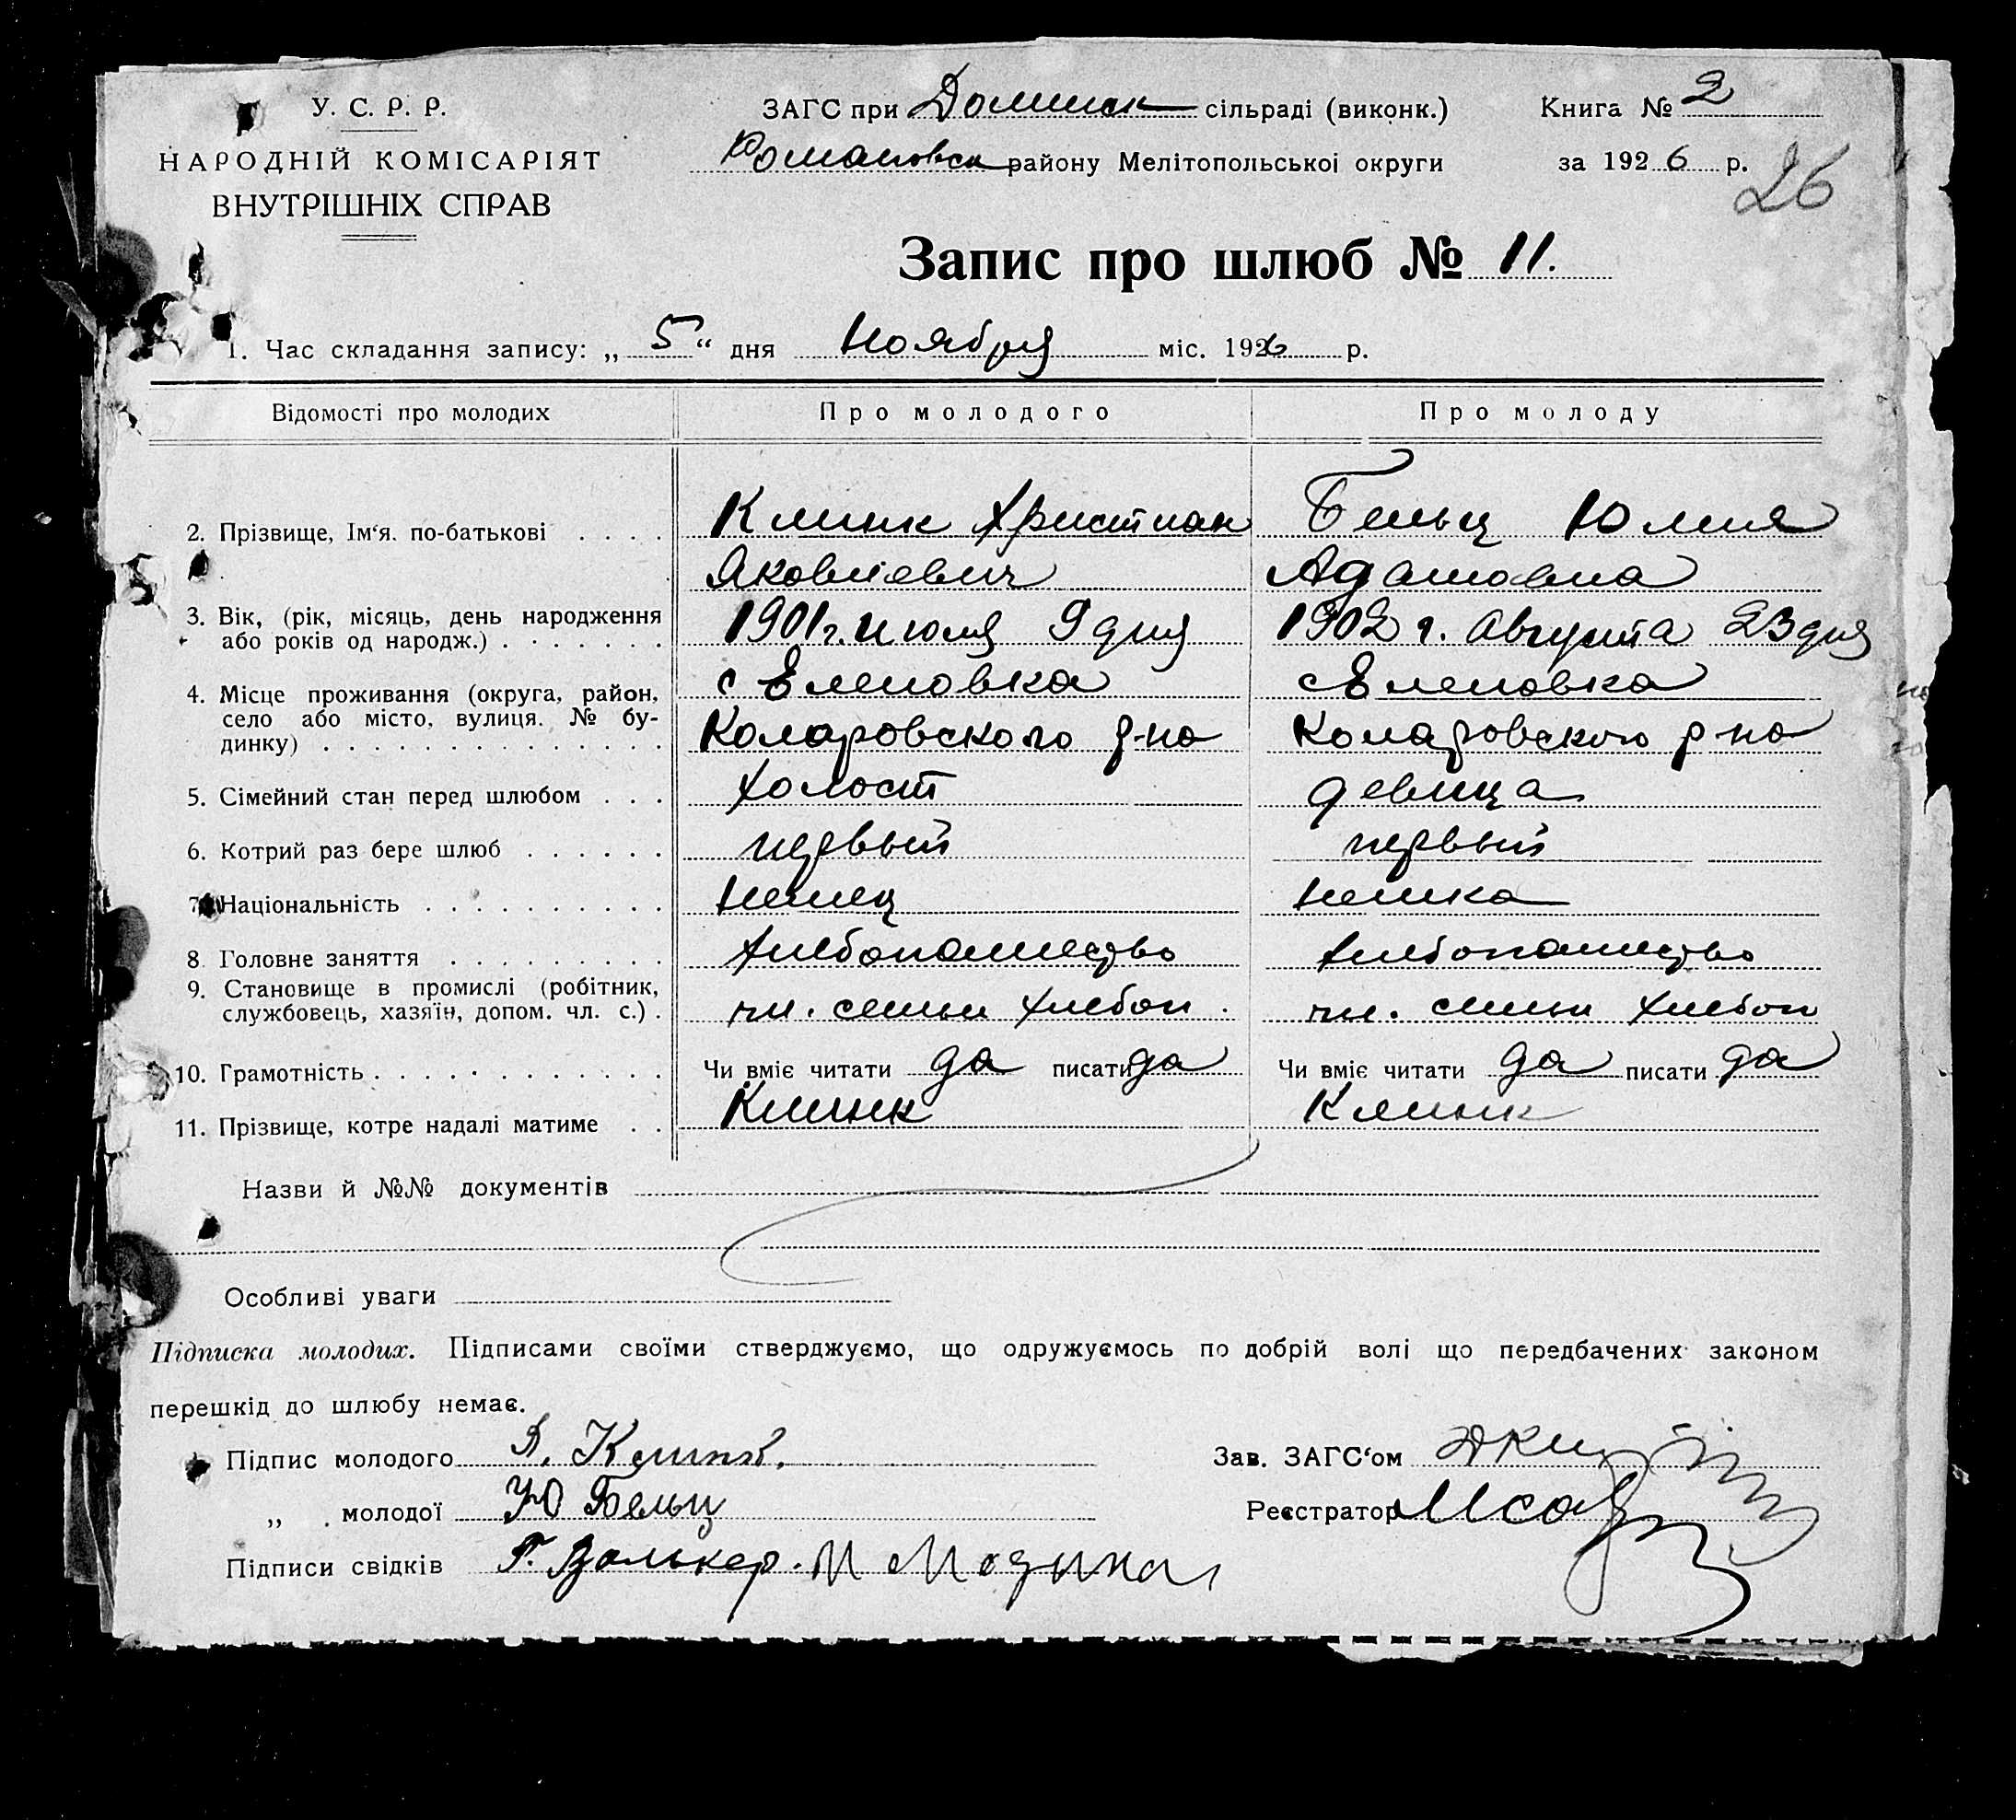 У. С. Р. Р.
НАРОДНІЙ КОМІСАРІЯТ
ВНУТРІШНІХ СПРАВ
ЗАГС при сільраді (виконк.)
Романовск району Мелітопольської округи
Книга № 2
за 1926 р.
26
Запис про шлюб № 11.
1. Час складання запису: „5“ дня Ноября міс. 1926 р.
Відомості про молодих Про молодого Про молоду
2. Прізвище, Ім‘я. по-батькові . . . . Клинк Христиан Бельц Юлия
Яковлевич Адамовна
3. Вік, (рік, місяць, день народження
або років од народж.) . . . . . . . 1901 г. июля 9 дня 1902 г. Августа 23 дня
4. Місце проживання (округа, район, с Еленовка с Еленовка
село або місто, вулиця. № бу-
динку) . . . . . . . . . . . . . . Коларовского р-на Коларовского р-на
5. Сімейний стан перед шлюбом . . . холост девица
6. Котрий раз бере шлюб . . . . . . первый первый
7. Національність . . . . . . . . . . немец немка
8. Головне заняття . . . . . . . . . хлебопашество хлебопашество
9. Становище в промислі (робітник,
службовець, хазяїн, допом. чл. с.) . чл. семьи хлебоп. чл. семьи хлебоп
10. Грамотність . . . . . . . . . . . . Чи вміє читати да писати да Чи вміє читати да писати да
11. Прізвище, котре надалі матиме . . Клинк Клинк
Назви й №№ документів
Особливі уваги
Підписка молодих. Підписами своїми стверджуємо, що одружуємось по добрій волі що передбачених законом
перешкід до шлюбу немає.
Підпис молодого Клинк.
„ молодої Ю Бельц
Підписи свідків Г. Валькер. М
Зав. ЗАГС‘ом
Реєстратор